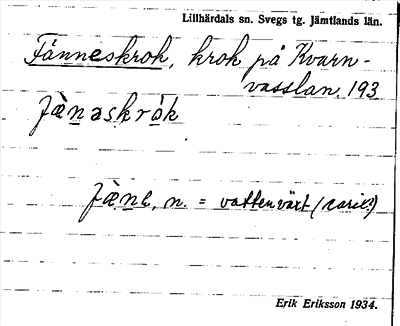 Lillhärdals sn. Svegs tg. Jämtlands län.
Fänneskrok, krok på Kvarn-
vasslan. 193
fæ̀nəskròk
fæ̀nɩ, n. = vattenväxt (carix?)
Erik Eriksson 1934.